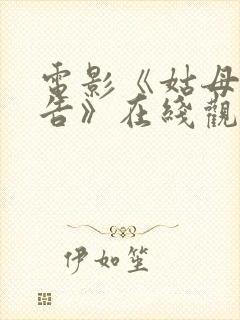 電影《姑母
告》在綫觀
伊如笙